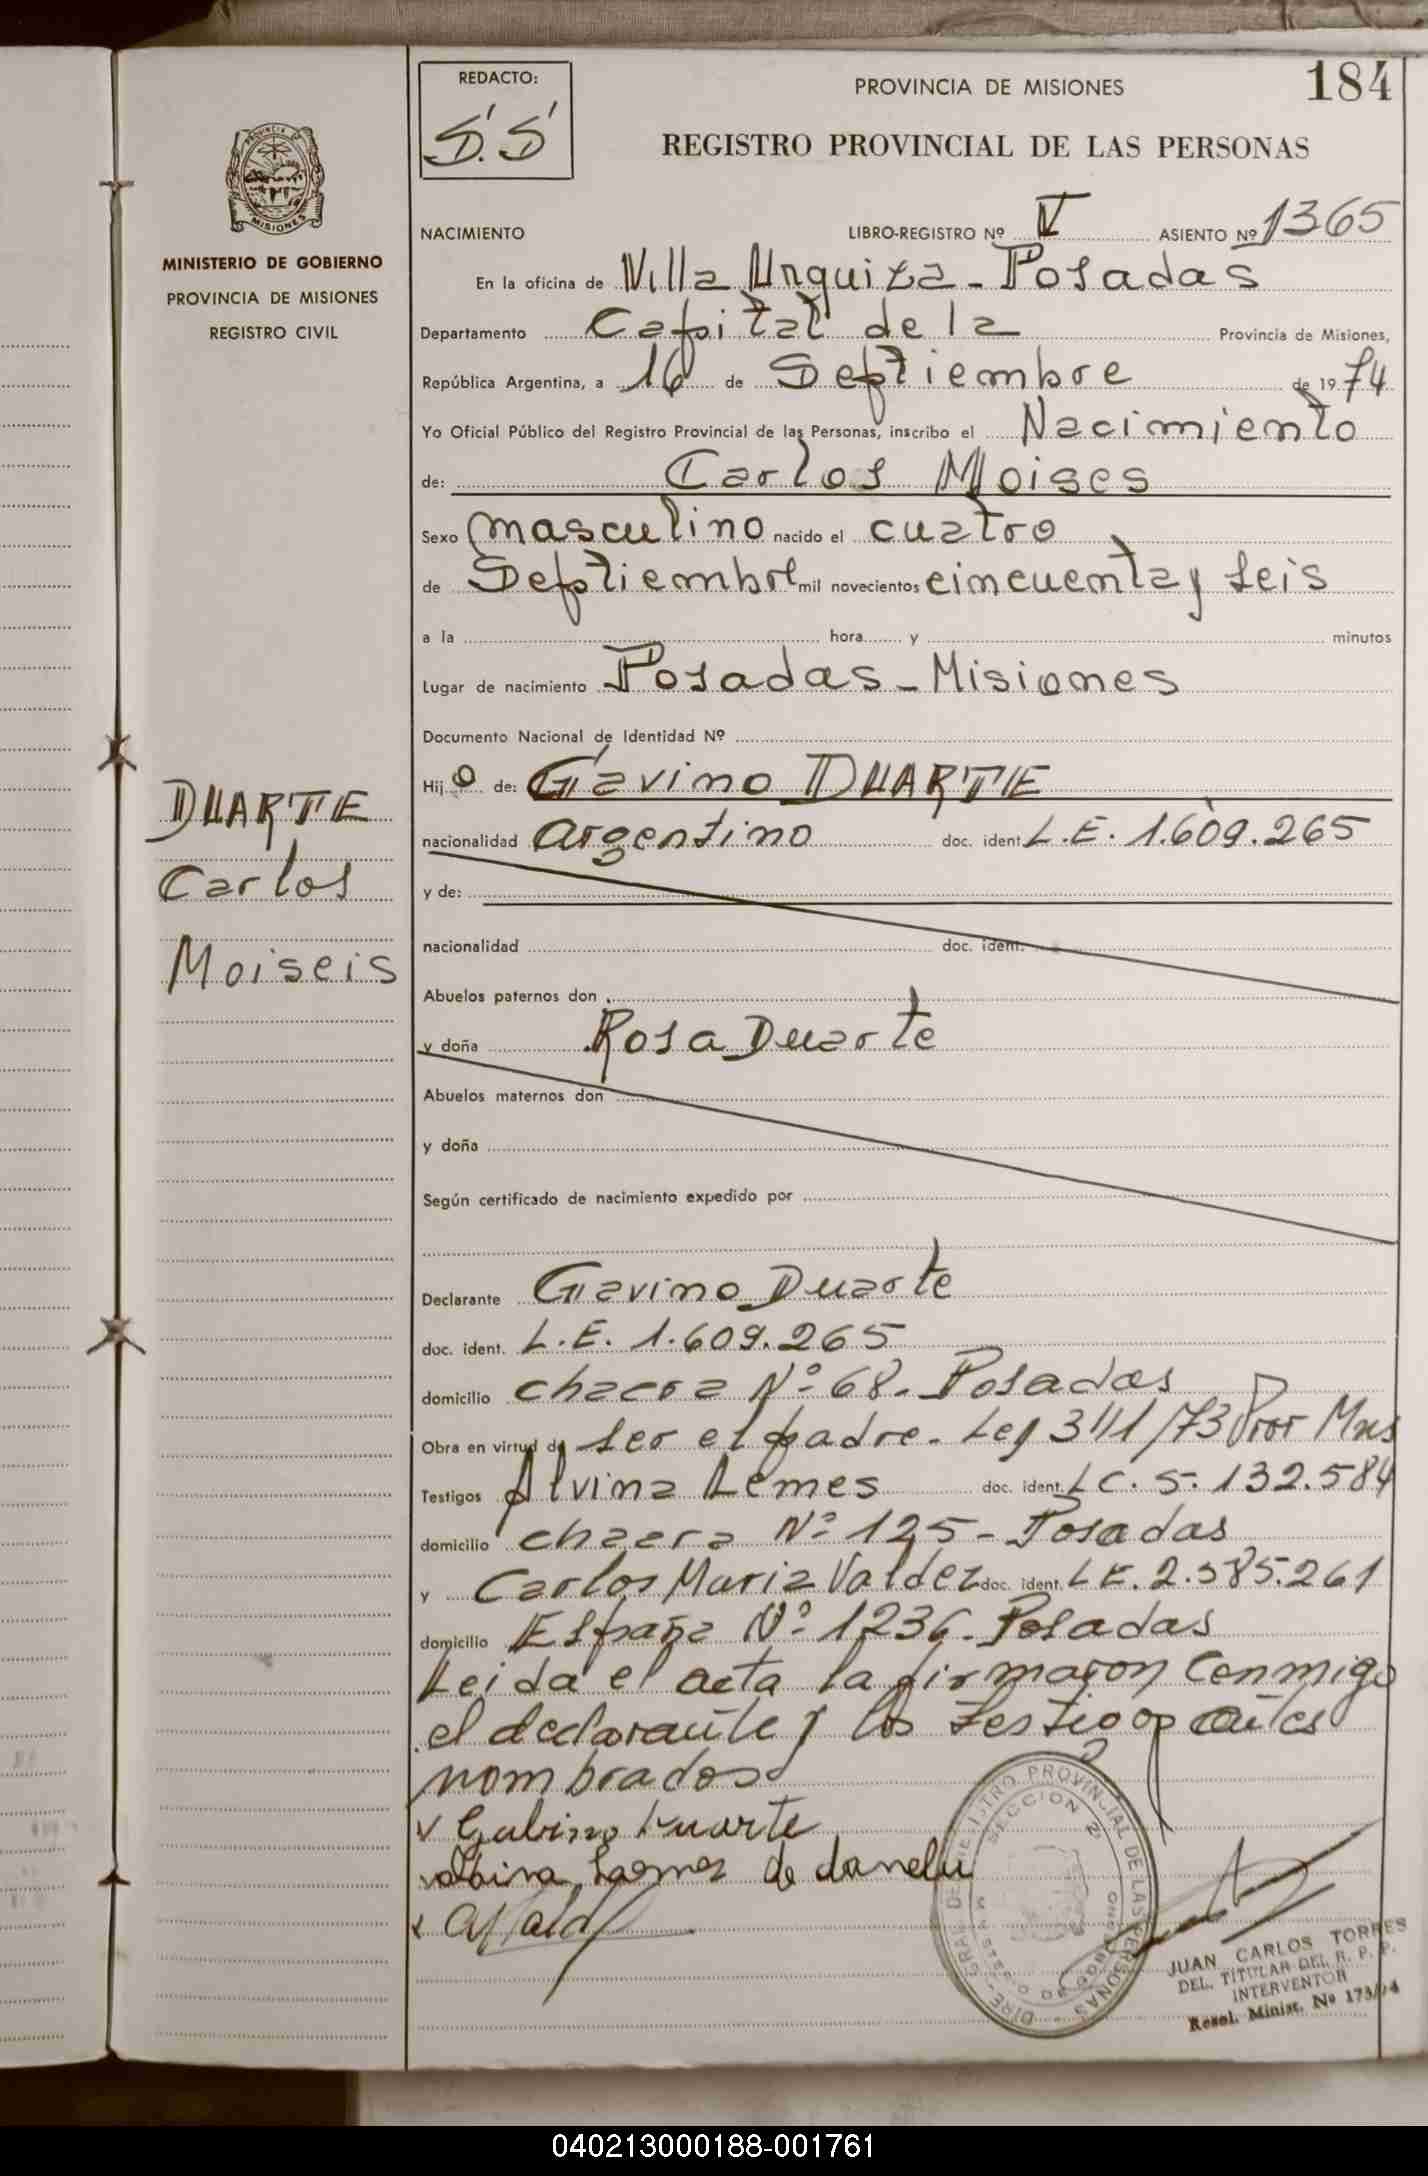 REDACTO:
S.S
PROVINCIA DE MISIONES
184
REGISTRO PROVINCIAL DE LAS PERSONAS
PROVINCIA DE MISIONES
MINISTERIO DE GOBIERNO
PROVINCIA DE MISIONES
REGISTRO CIVIL
DUARTE
Carlos
Moiseis
NACIMIENTO LIBRO-REGISTRO Nº V ASIENTO Nº 1365
En la oficina de Villa Urquiza - Posadas
Departamento Capital de la Provincia de Misiones,
República Argentina, a 16 de Septiembre de 1974
Yo Oficial Público del Registro Provincial de las Personas, inscribo el Nacimiento
de: Carlos Moises
Sexo masculino nacido el cuatro
de Septiembre mil novecientos cincuenta y seis
a la hora y minutos
Lugar de nacimiento Posadas - Misiones
Documento Nacional de Identidad Nº
Hijo de: Gavino DUARTE
nacionalidad argentino doc. ident. L.E. 1.609.265
y de:
nacionalidad doc. ident.
Abuelos paternos don
y doña Rosa Duarte
Abuelos maternos don
y doña
Según certificado de nacimiento expedido por
Declarante Gavino Duarte
doc. ident. L.E. 1.609.265
domicilio chacra Nº 68 - Posadas
Obra en virtud de ser el padre. Ley 311/73 Mns
Testigos Alvina Lemes doc. ident. LC. 5.132.584
domicilio chacra Nº 125 - Posadas
y Carlos Maria Valdez doc. ident. L.E. 2.385.261
domicilio España Nº 1236 - Posadas
Leida el acta la firmaron conmigo
el declarante y los testigos antes
nombrados
Gabino Duarte
de
DIRE. GRAL. DE REGISTRO PROVINCIAL DE LAS PERSONAS
SECCION 2
POSADAS MISIONES
JUAN CARLOS TORRES
DEL. TITULAR DEL R. P. P.
INTERVENTOR
Resol. Minist. Nº 173/74
040213000188-001761